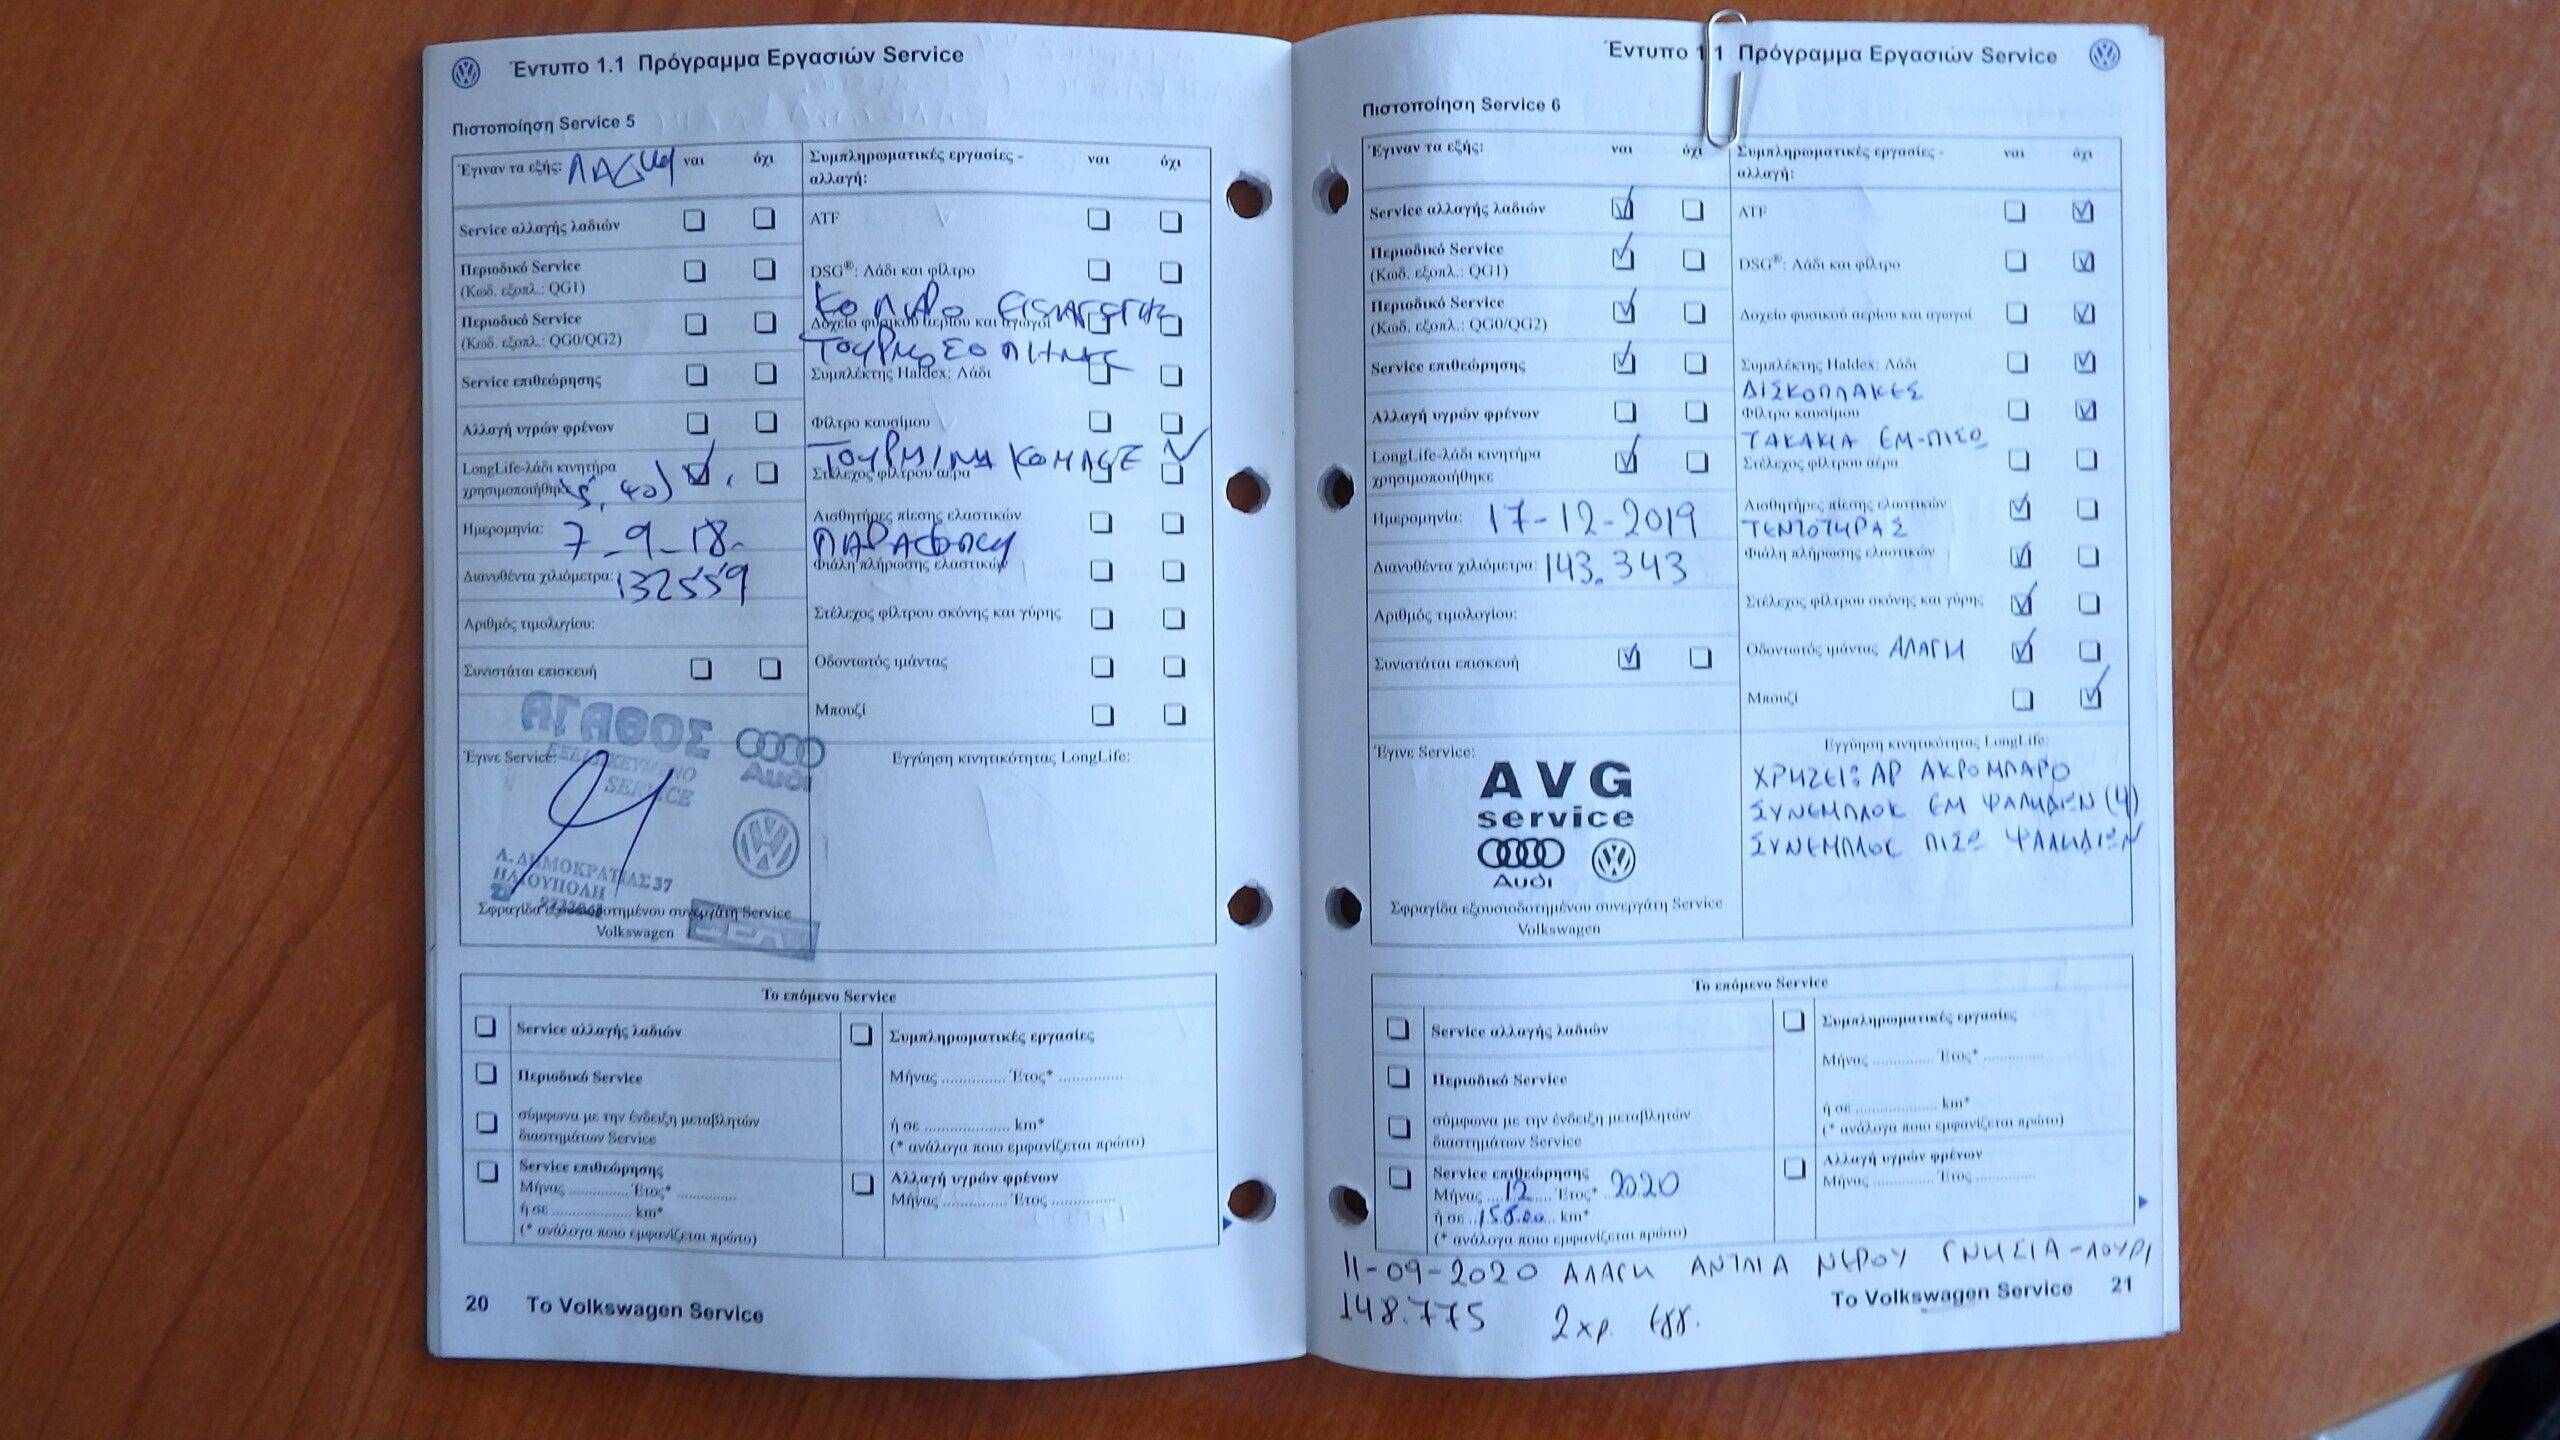 Έντυπο 1.1 Πρόγραμμα Εργασιών Service
Πιστοποίηση Service 5
Έγιναν τα εξής: ναι όχι
Συμπληρωματικές εργασίες - ναι όχι
αλλαγή:
Service αλλαγής λαδιών
Περιοδικό Service
(Κωδ. εξοπλ.: QG1)
Περιοδικό Service
(Κωδ. εξοπλ.: QG0/QG2)
Service επιθεώρησης
Αλλαγή υγρών φρένων
LongLife-λάδι κινητήρα
χρησιμοποιήθηκε
Ημερομηνία: 7-9-18
Διανυθέντα χιλιόμετρα: 132559
Αριθμός τιμολογίου:
Συνιστάται επισκευή
ATF
DSG®: Λάδι και φίλτρο
ΚΟΛΑΡΟ ΕΙΣΑΓΩΓΗΣ
Δοχείο φυσικού αερίου και αγωγοί
Συμπλέκτης Haldex: Λάδι
Φίλτρο καυσίμου
ΤΟΥΡΜΠΙΝΑ ΚΟΜΠΛΕ
Στέλεχος φίλτρου αέρα
Αισθητήρες πίεσης ελαστικών
Φιάλη πλήρωσης ελαστικών
Στέλεχος φίλτρου σκόνης και γύρης
Οδοντωτός ιμάντας
Μπουζί
Έγινε Service:
ΑΓΑΘΟΣ
ΕΞΕΙΔΙΚΕΥΜΕΝΟ
SERVICE
Audi
Λ. ΔΗΜΟΚΡΑΤΙΑΣ 37
ΗΛΙΟΥΠΟΛΗ
Σφραγίδα εξουσιοδοτημένου συνεργάτη Service
Volkswagen
Εγγύηση κινητικότητας LongLife:
Το επόμενο Service
Service αλλαγής λαδιών
Περιοδικό Service
σύμφωνα με την ένδειξη μεταβλητών
διαστημάτων Service
Service επιθεώρησης
Μήνας .............. Έτος* ..............
ή σε .................... km*
(* ανάλογα ποιο εμφανίζεται πρώτο)
Συμπληρωματικές εργασίες
Μήνας .............. Έτος* ..............
ή σε .................... km*
(* ανάλογα ποιο εμφανίζεται πρώτο)
Αλλαγή υγρών φρένων
Μήνας .............. Έτος ..............
20 Το Volkswagen Service
Έντυπο 1.1 Πρόγραμμα Εργασιών Service
Πιστοποίηση Service 6
Έγιναν τα εξής: ναι όχι
Συμπληρωματικές εργασίες - ναι όχι
αλλαγή:
Service αλλαγής λαδιών
Περιοδικό Service
(Κωδ. εξοπλ.: QG1)
Περιοδικό Service
(Κωδ. εξοπλ.: QG0/QG2)
Service επιθεώρησης
Αλλαγή υγρών φρένων
LongLife-λάδι κινητήρα
χρησιμοποιήθηκε
Ημερομηνία: 17-12-2019
Διανυθέντα χιλιόμετρα: 143.343
Αριθμός τιμολογίου:
Συνιστάται επισκευή
ATF
DSG®: Λάδι και φίλτρο
Δοχείο φυσικού αερίου και αγωγοί
Συμπλέκτης Haldex: Λάδι
ΔΙΣΚΟΠΛΑΚΕΣ
Φίλτρο καυσίμου
ΤΑΚΑΚΙΑ ΕΜ-ΠΙΣΩ
Στέλεχος φίλτρου αέρα
Αισθητήρες πίεσης ελαστικών
ΤΕΝΤΟΤΗΡΑΣ
Φιάλη πλήρωσης ελαστικών
Στέλεχος φίλτρου σκόνης και γύρης
Οδοντωτός ιμάντας ΑΛΑΓΗ
Μπουζί
Έγινε Service:
AVG
service
Audi
Σφραγίδα εξουσιοδοτημένου συνεργάτη Service
Volkswagen
Εγγύηση κινητικότητας LongLife:
ΧΡΗΖΕΙ: ΑΡ ΑΚΡΟΜΠΑΡΟ
ΣΥΝΕΜΠΛΟΚ ΕΜ ΨΑΛΙΔΙΩΝ (4)
ΣΥΝΕΜΠΛΟΚ ΠΙΣΩ ΨΑΛΙΔΙΩΝ
Το επόμενο Service
Service αλλαγής λαδιών
Περιοδικό Service
σύμφωνα με την ένδειξη μεταβλητών
διαστημάτων Service
Service επιθεώρησης
Μήνας 12 Έτος* 2020
ή σε 15.000 km*
(* ανάλογα ποιο εμφανίζεται πρώτο)
Συμπληρωματικές εργασίες
Μήνας .............. Έτος* ..............
ή σε .................... km*
(* ανάλογα ποιο εμφανίζεται πρώτο)
Αλλαγή υγρών φρένων
Μήνας .............. Έτος ..............
11-09-2020 ΑΛΑΓΗ ΑΝΤΛΙΑ ΝΕΡΟΥ ΓΝΗΣΙΑ-ΛΟΥΡΙ
148.775 2 χρ. εγγ.
Το Volkswagen Service 21